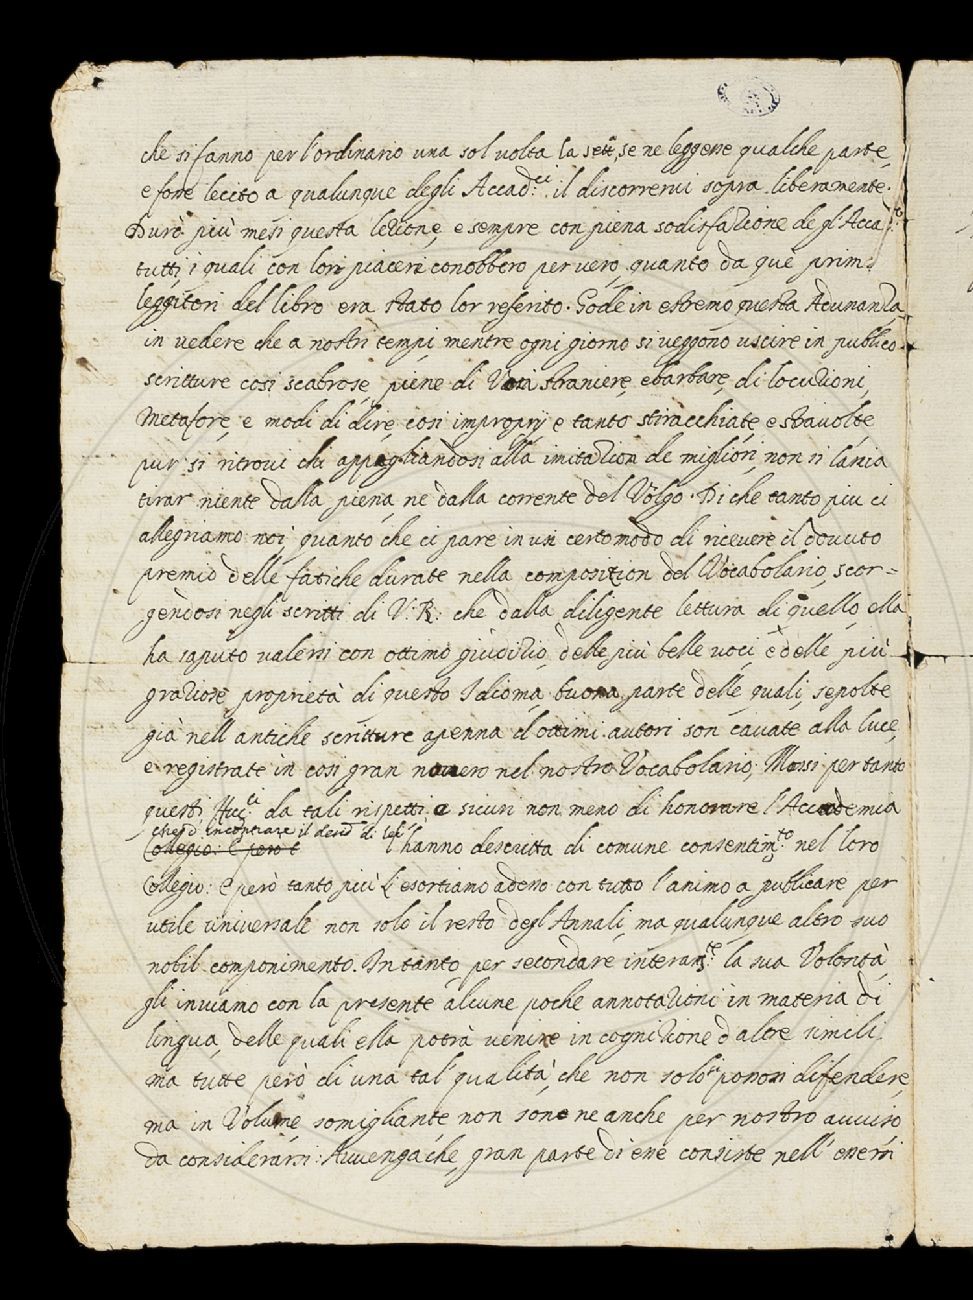 che si fanno per l'ordinario una sol volta la sett.a, se ne leggesse qualche parte,
e fosse lecito a qualunque degli Accad:ci il discorrervi sopra liberamente.
Durò più mesi questa lezione, e sempre con piena sodisfazione degl'Acca:ci
tutti, i quali con lor piacere conobbero per vero quanto da que primi
leggitori del libro era stato lor referito. Gode in estremo questa Adunanza
in vedere che a nostri tempi, mentre ogni giorno si veggono uscire in publico
scritture così scabrose, piene di Voci straniere, e barbare, di locuzioni,
Metafore, e modi di dire, così improprij e tanto stiracchiate, e stravolte
pur si ritrovi chi appigliandosi alla imitazion de migliori, non si lascia
tirar niente dalla piena, ne dalla corrente del Volgo. Di che tanto più ci
allegriamo noi, quanto che ci pare in un certo modo di ricevere il dovuto
premio delle fatiche durate nella composizion del Vocabolario, scor=
gendosi negli scritti di V: R: che dalla diligente lettura di quello, ella
ha saputo valersi con ottimo giudizio, delle più belle voci, e delle più
graziose proprietà di questo Idioma, buona parte delle quali, sepolte
già nell antiche scritture a penna d'ottimi autori son cavate alla luce,
e registrate in così gran novero nel nostro Vocabolario, Mossi per tanto
questi Acc:ci da tali rispetti, e sicuri non meno di honorare l'Accademia
che d'incontrare il desid.o di lei
Collegio: E però t l'hanno descritta di comune consentim:to nel loro
Collegio: E però tanto più L'esortiamo adesso con tutto l'animo a publicare per
utile universale non solo il resto degl'Annali, ma qualunque altro suo
nobil componimento. In tanto, per secondare interam:te la sua Volontà,
gli inviamo con la presente alcune poche annotazioni in materia di
lingua, delle quali ella potrà venire in cognizione d altre simili
ma tutte però di una tal qualità, che non solo si posson difendere,
ma in Volume somigliante non sono ne anche per nostro avviso
da considerarsi: Avvenga che, gran parte di esse consiste nell'essersi